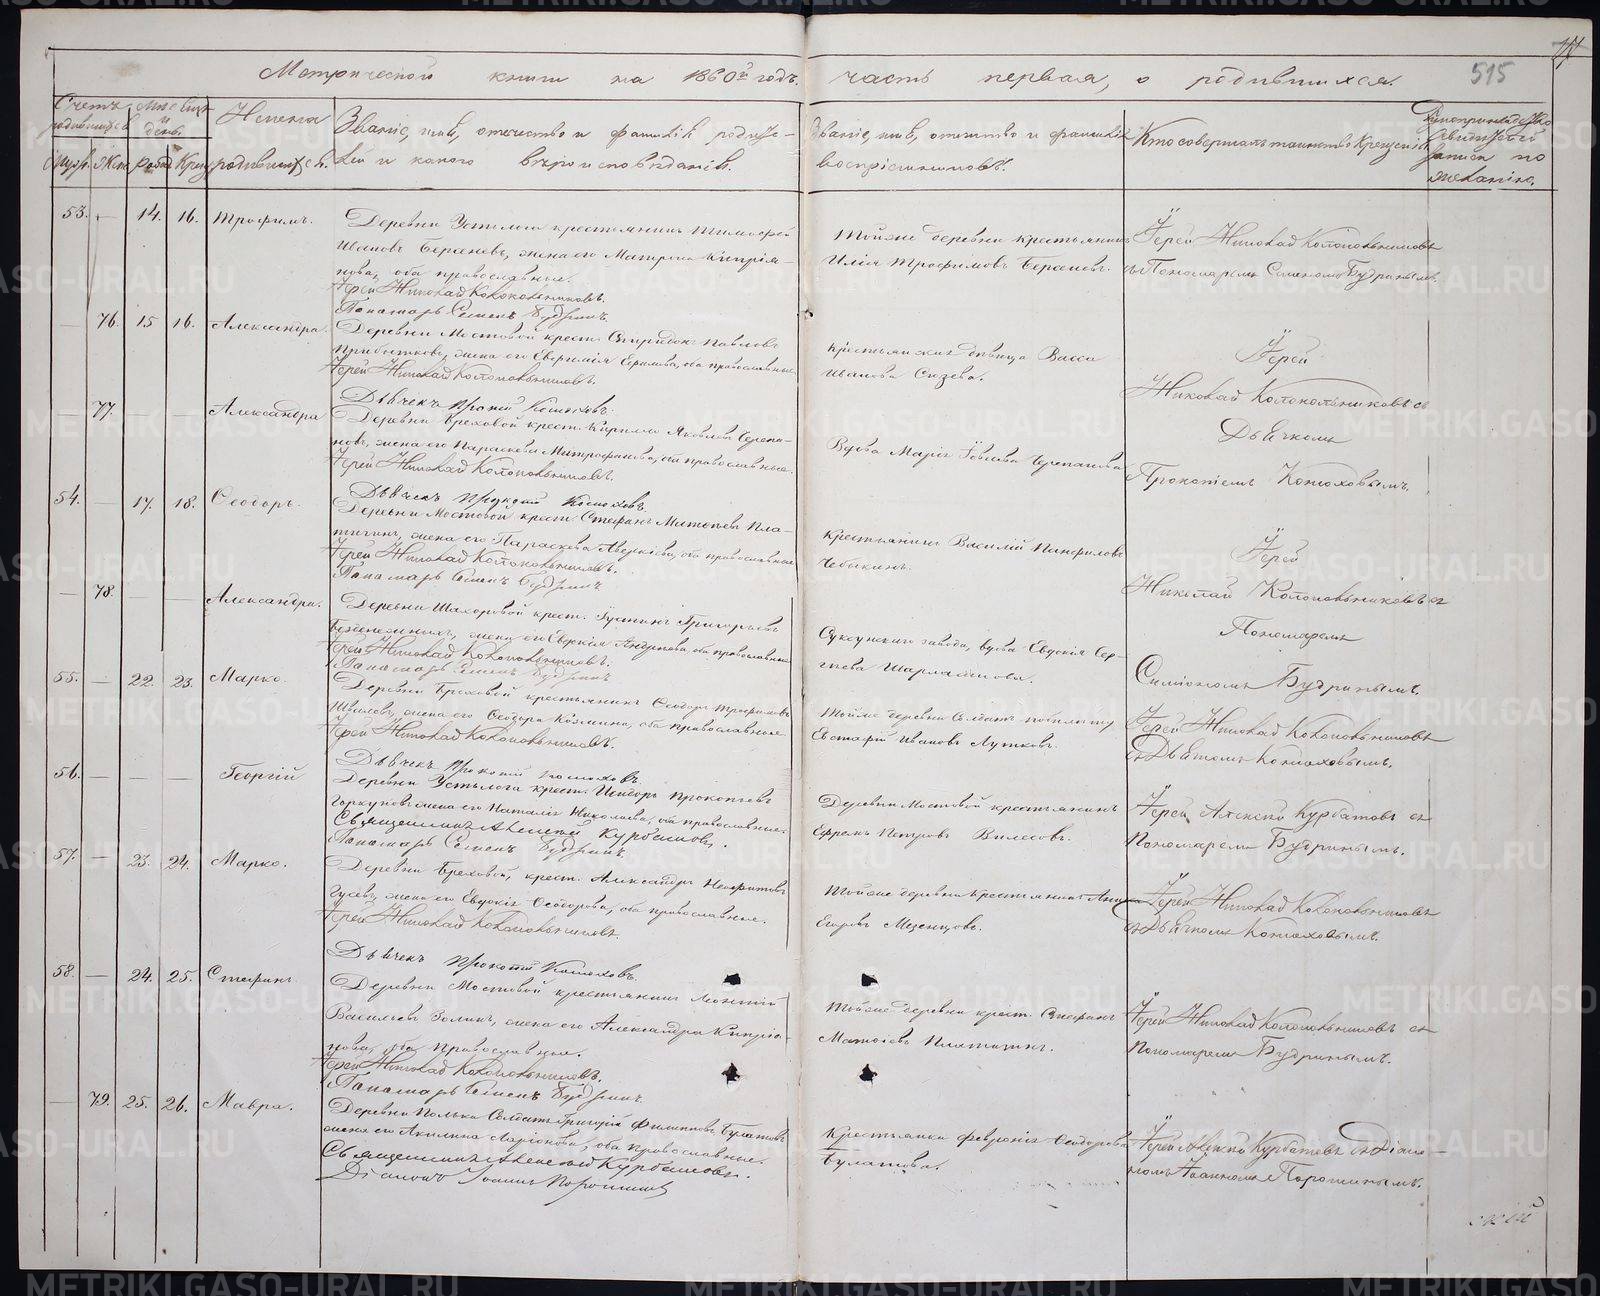 Метрической книги на 1860й годъ часть первая, о родившихся.
515
Счетъ родившихся
Муж. Жен.
Мѣсяцъ и день
рожд. Крещ.
Имена родившихся.
Званіе, имя, отчество и фамилія родите-
лей и какого вѣроисповѣданія.
Званіе, имя, отчество и фамилія
воспріемниковъ.
Кто совершалъ таинство Крещенія
Рукоприкладство свидѣтелей записи по желанію.
53. — 14. 16. Трофимъ.
Деревни Устьлога крестьянинъ Тимофей
Ивановъ Берсеневъ, жена его Матрона Кипрія-
нова, оба православные.
Іерей Николай Колокольниковъ.
Пономарь Семенъ Будринъ.
Тойже деревни крестьянинъ
Илія Трофимовъ Берсеневъ.
Іерей Николай Колокольниковъ
съ Пономаремъ Семеномъ Будринымъ.
— 76. 15 16. Александра.
Деревни Мостовой крест. Спиридонъ Павловъ
Прибытковъ, жена его Евфимія Ефимова, оба православные.
Іерей Николай Колокольниковъ.
Дьячекъ Прокопій Конюховъ.
Крестьянская дѣвица Васса
Иванова Сизева.
Іерей
Николай Колокольниковъ съ
Дьячкомъ
Прокопіемъ Конюховымъ.
— 77. — — Александра
Деревни Бреховой крест. Кирилъ Яковлевъ Черепа-
новъ, жена его Параскева Митрофанова, оба православные.
Іерей Николай Колокольниковъ.
Дьячекъ Прокопій Конюховъ.
Вдова Марія Іовлева Черепанова
54. — 17. 18. Ѳеодоръ.
Деревни Мостовой крест. Стефанъ Матѳеевъ Пла-
тигинъ, жена его Параскева Аверкіева, оба православные
Іерей Николай Колокольниковъ.
Пономарь Семенъ Будринъ
Крестьянинъ Василій Панфиловъ
Чебыкинъ.
Іерей
Николай Колокольниковъ съ
Пономаремъ
Симіономъ Будринымъ.
— 78. — — Александра.
Деревни Шахаровой крест. Іустинъ Григорьевъ
жена его Евдокія Андреева, оба православные
Іерей Николай Колокольниковъ.
Пономарь Семенъ Будринъ
Суксунскаго завода, вдова Евдокія Сер-
гѣева
55. — 22. 23. Марко.
Деревни Бреховой крестьянинъ Ѳеодоръ Трофимовъ
жена его Ѳеодора Козмина, оба православные
Іерей Николай Колокольниковъ.
Дьячекъ Прокопій Конюховъ.
Тойже деревни Солдатъ
Евстафій Ивановъ Лутковъ.
Іерей Николай Колокольниковъ
съ Дьячкомъ Конюховымъ.
56. — — — Георгій
Деревни Устьлога крест. Исидоръ Прокопьевъ
Горкуновъ жена его Наталія Николаева, оба православные.
Священникъ Алексѣй Курбатовъ.
Пономарь Семенъ Будринъ.
Деревни Мостовой крестьянинъ
Ефремъ Петровъ Вилесовъ.
Іерей Алексѣй Курбатовъ съ
Пономаремъ Будринымъ.
57. — 23. 24. Марко.
Деревни Бреховой, крест. Александръ Неофитовъ
Гусевъ, жена его Евдокія Ѳеодорова, оба православные.
Іерей Николай Колокольниковъ.
Дьячекъ Прокопій Конюховъ.
Тойже деревни крестьянинъ
Егоровъ Мезенцовъ.
Іерей Николай Колокольниковъ
съ Дьячкомъ Конюховымъ.
58. — 24. 25. Стефанъ
Деревни Мостовой крестьянинъ Леонтій
Васильевъ Золинъ, жена его Александра Кипрія-
нова, оба православные.
Іерей Николай Колокольниковъ.
Пономарь Семенъ Будринъ.
Тойже деревни крест. Стефанъ
Матѳеевъ Платигинъ.
Іерей Николай Колокольниковъ съ
Пономаремъ Будринымъ.
— 79. 25. 26. Мавра.
Деревни Полька Солдатъ Григорій Филиповъ Булатовъ
жена его Акилина Ларіонова, оба православные.
Священникъ Алексѣй Курбатовъ.
Діаконъ Іоаннъ Порошинъ
Крестьянка Февронія Ѳеодорова
Булатова.
Іерей Алексѣй Курбатовъ съ Діако-
номъ Іоанномъ Порошинымъ.
METRIKI.GASO-URAL.RU